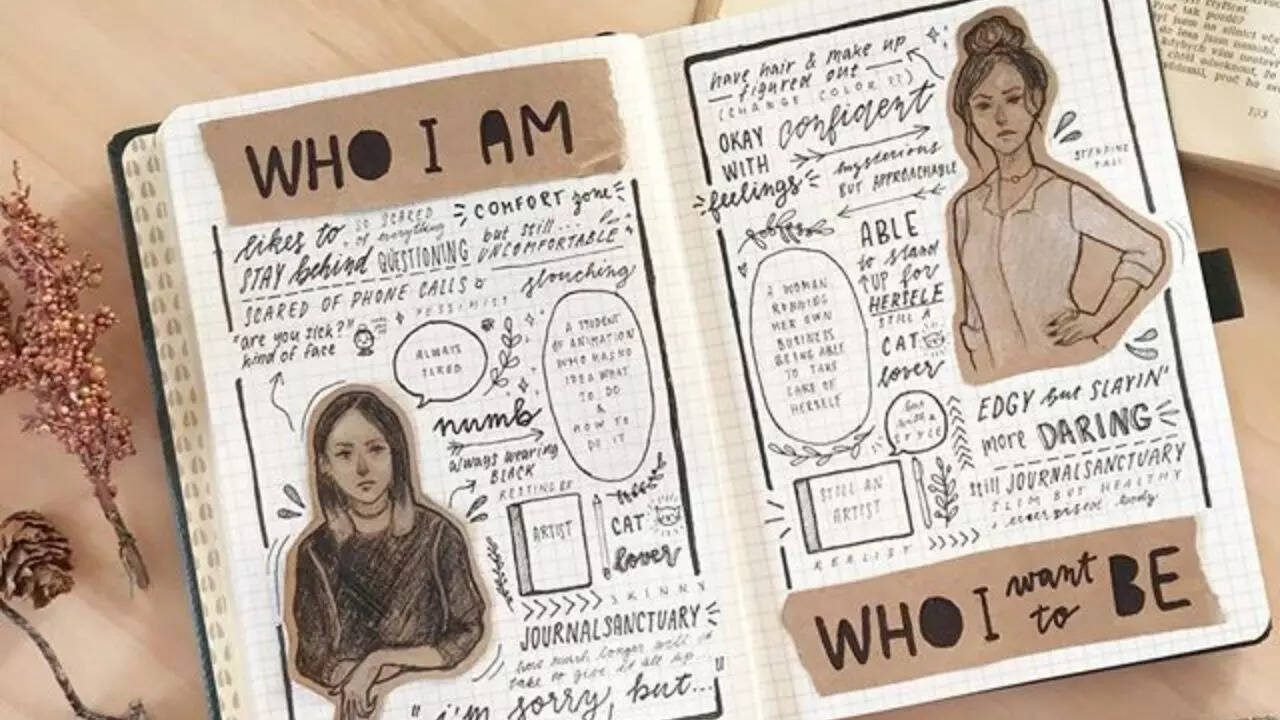 WHO I AM
likes to
STAY behind
SO SCARED
of everything
QUESTIONING
COMFORT zone
but still...
UNCOMFORTABLE
SCARED OF PHONE CALLS
PESSIMIST
slouching
"are you sick?"
kind of face
ALWAYS
TIRED
A STUDENT
OF ANIMATION
WHO HAS NO
IDEA WHAT
TO DO
&
HOW TO
DO IT
numb
always wearing
BLACK
RESTING BF
ARTIST
CAT
lover
SKINNY
JOURNALSANCTUARY
how much longer will it
take to give it all up...
"i'm sorry, but...
have hair & make up
figured out
(CHANGE COLOR ??)
OKAY
WITH
feelings
confident
mysterious
BUT APPROACHABLE
STANDING
TALL
A WOMAN
RUNNING
HER OWN
BUSINESS
BEING ABLE
TO TAKE
CARE OF
HERSELF
ABLE
to stand
UP for
HERSELF
STILL A
CAT
lover
but
with a
STYLE
EDGY but SLAYIN'
more DARING
still JOURNALSANCTUARY
SLIM BUT HEALTHY
& exercised body
STILL AN
ARTIST
REALIST
WHO I want
to BE
123